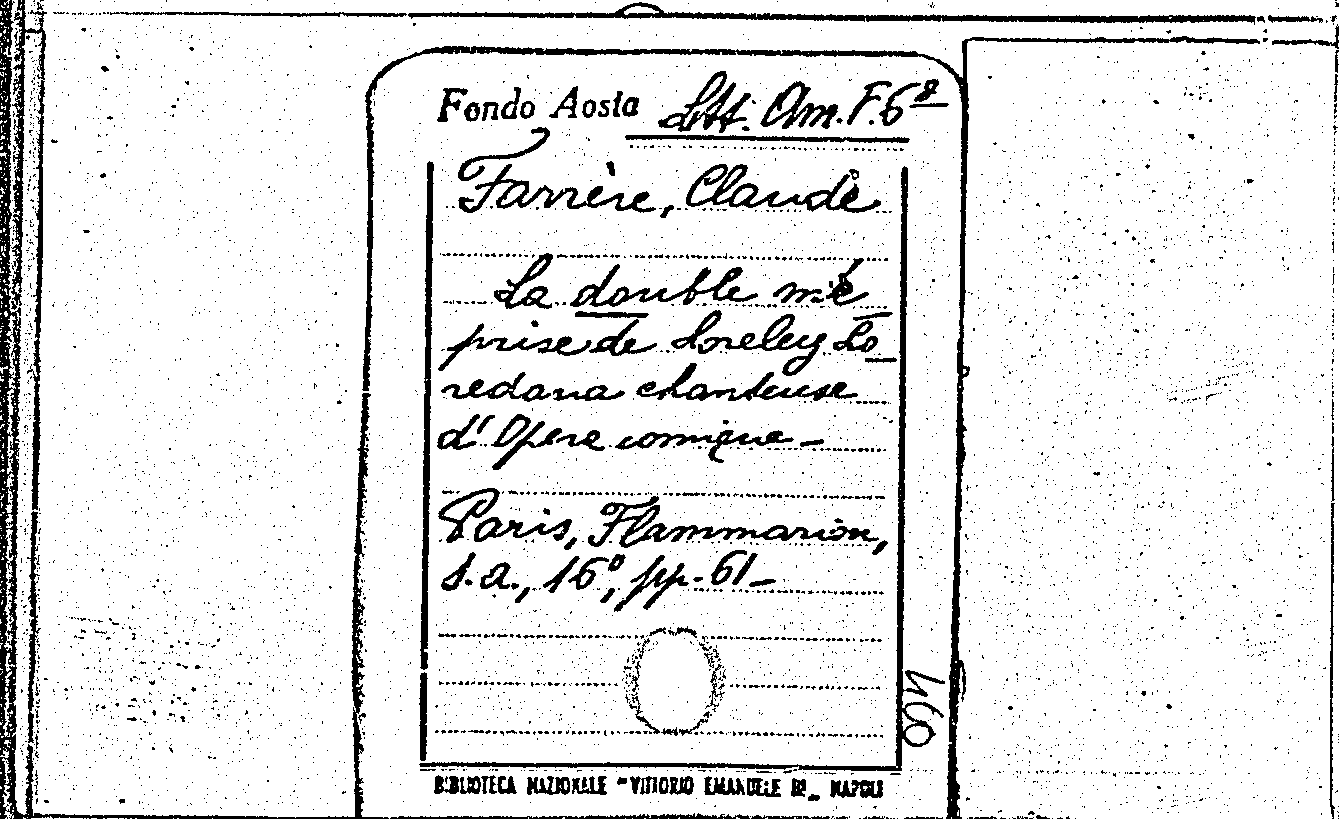 Fondo Aosta Lett. Am. F. 6⁸
Farrère, Claude
La double mé
prise de Loreley Lo
redana chanteuse
d'Opere comique –
Paris, Flammarion,
s.a., 16°, pp. 61 –
460
BIBLIOTECA NAZIONALE "VITTORIO EMANUELE III" NAPOLI